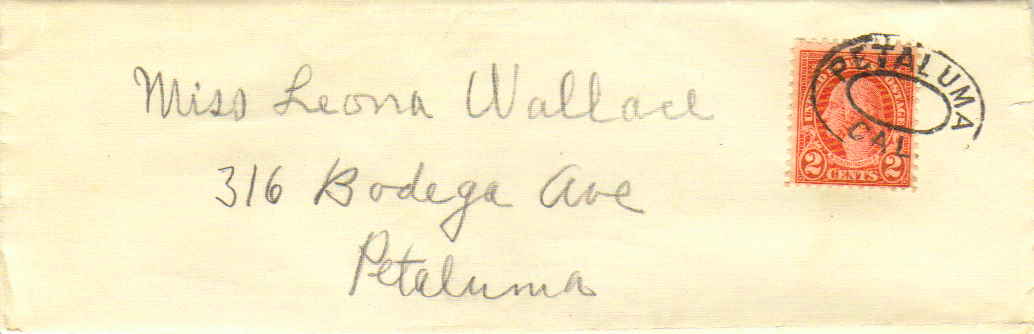 Miss Leona Wallace
316 Bodega Ave
Petaluma
PETALUMA
CAL
UNITED STATES POSTAGE
2 CENTS 2